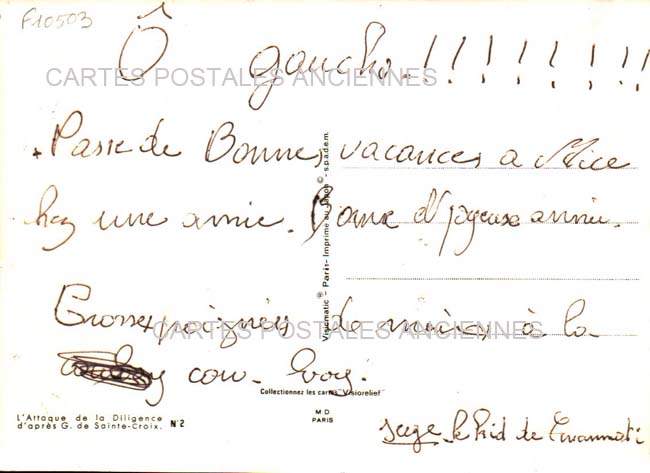 F10503
Ô gaucho.!!!!!!!!
CARTES POSTALES ANCIENNES
Passe de Bonnes vacances a Nice
chez une amie. Bonne & Joyeuse année.
Grosses poignées de mains à la
cow-Boy.
CARTES POSTALES ANCIENNES
Visiomatic ® - Paris - Imprimé au Japon - s.p.a.d.e.m.
Collectionnez les cartes "Visiorelief"
L'Attaque de la Diligence
d'après G. de Sainte-Croix. N°2
M D
PARIS
Serge le Kid de